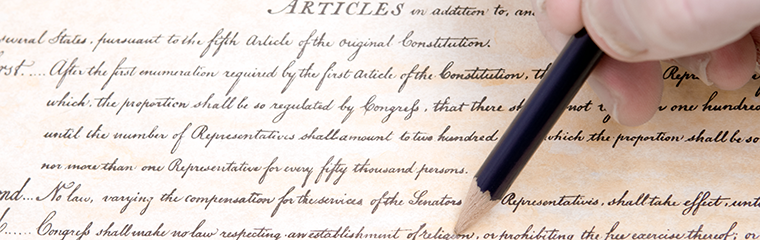 ARTICLES in addition to, an
several States, pursuant to the fifth Article of the original Constitution.
rst..... After the first enumeration required by the first Article of the Constitution, th Repr
which, the proportion shall be so regulated by Congress, that there sh not one hundred
until the number of Representatives shall amount to two hundred which the proportion shall be so
nor more than one Representative for every fifty thousand persons.
nd... No law, varying the compensation for the services of the Senators Representatives, shall take effect, unt
Congress shall make no law respecting an establishment of religion, or prohibiting the free exercise thereof; or